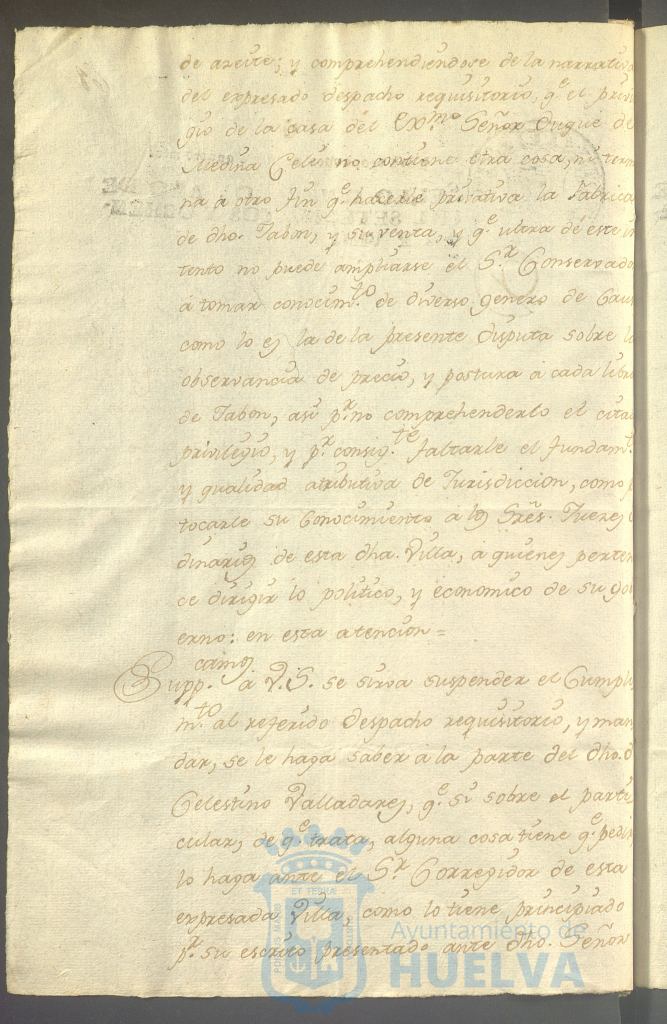 de azeite; y comprehendiendose de la narrativa
del expresado despacho requisitorio, q.e el privi
gio de la casa del Ex.mo Señor Duque de
Medina Celi no contiene otra cosa, ni termi
na á otro fin q.e hacerle privativa la Fabrica
de dho. Jabon, y su venta, y q.e ultra de este in
tento no puede ampliarse el S.r Conservador
á tomar conocim.to de diverso genero de Caus
como lo es la de la presente disputa sobre la
observancia de precio, y postura á cada libra
de Jabon, asi p.r no comprehenderlo el citad
privilegio, y p.r consig.te faltarle el fundam.to
y qualidad atributiva de Jurisdiccion, como p
tocarle su Conocimiento a los Sres. Jueces
dinarios de esta dha. Villa, á quienes perten
ce dirigir lo politico, y economico de su go
erno: en esta atencion =
Supp.camos á V.S. se sirva suspender el Cumpli
m.to al referido despacho requisitorio, y man
dar, se le haga saber á la parte del dho. D
Celestino Valladares, q.e si sobre el parti
cular, de q.e trata, alguna cosa tiene q.e pedir
lo haga ante el S.r Corregidor de esta
expresada Villa, como lo tiene principiado
p.r su escrito presentado ante dho. Señor
Ayuntamiento de
HUELVA